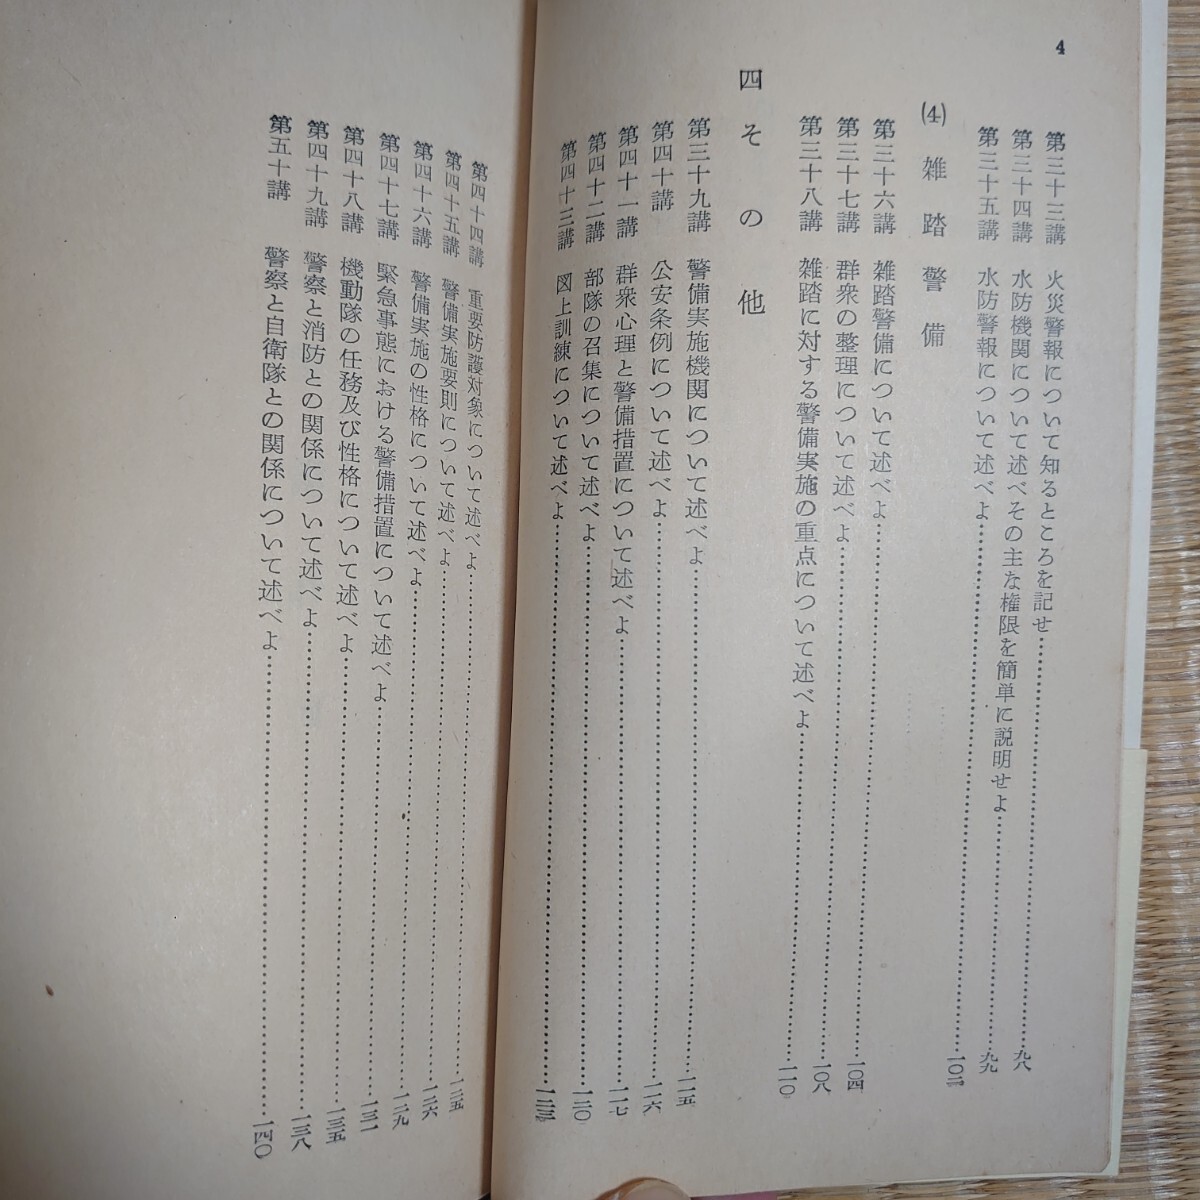 4
第三十三講 火災警報について知るところを記せ……九八
第三十四講 水防機関について述べその主な権限を簡単に説明せよ……九九
第三十五講 水防警報について述べよ……一〇二
(4) 雑踏警備
第三十六講 雑踏警備について述べよ……一〇四
第三十七講 群衆の整理について述べよ……一〇八
第三十八講 雑踏に対する警備実施の重点について述べよ……一一〇
四 その他
第三十九講 警備実施機関について述べよ……一一五
第四十講 公安条例について述べよ……一一六
第四十一講 群衆心理と警備措置について述べよ……一一七
第四十二講 部隊の召集について述べよ……一二〇
第四十三講 図上訓練について述べよ……一二三
第四十四講 重要防護対象について述べよ……一二五
第四十五講 警備実施要則について述べよ……一二六
第四十六講 警備実施の性格について述べよ……一二九
第四十七講 緊急事態における警備措置について述べよ……一三一
第四十八講 機動隊の任務及び性格について述べよ……一三五
第四十九講 警察と消防との関係について述べよ……一三八
第五十講 警察と自衛隊との関係について述べよ……一四〇